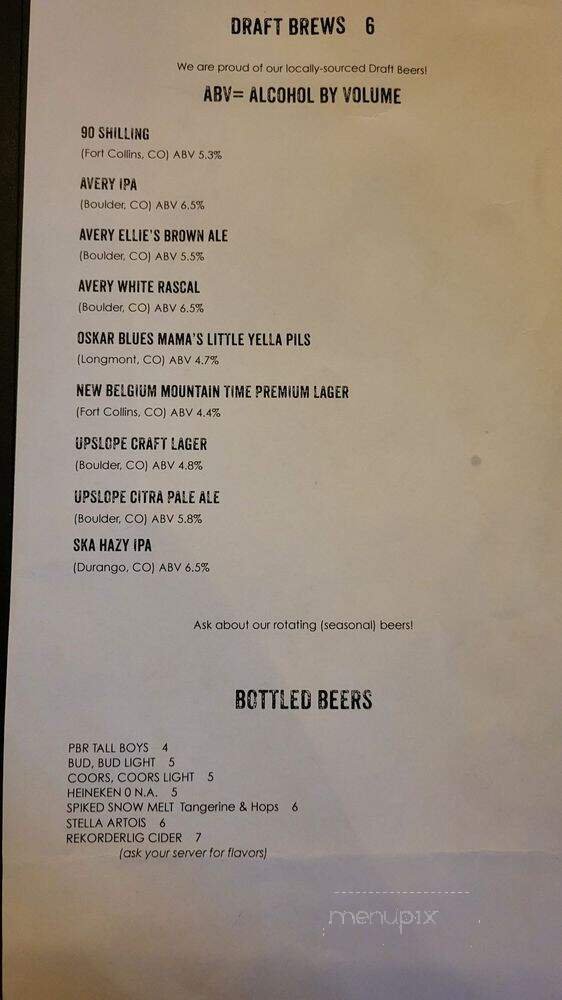 DRAFT BREWS 6
We are proud of our locally-sourced Draft Beers!
ABV= ALCOHOL BY VOLUME
90 SHILLING
(Fort Collins, CO) ABV 5.3%
AVERY IPA
(Boulder, CO) ABV 6.5%
AVERY ELLIE'S BROWN ALE
(Boulder, CO) ABV 5.5%
AVERY WHITE RASCAL
(Boulder, CO) ABV 6.5%
OSKAR BLUES MAMA'S LITTLE YELLA PILS
(Longmont, CO) ABV 4.7%
NEW BELGIUM MOUNTAIN TIME PREMIUM LAGER
(Fort Collins, CO) ABV 4.4%
UPSLOPE CRAFT LAGER
(Boulder, CO) ABV 4.8%
UPSLOPE CITRA PALE ALE
(Boulder, CO) ABV 5.8%
SKA HAZY IPA
(Durango, CO) ABV 6.5%
Ask about our rotating (seasonal) beers!
BOTTLED BEERS
PBR TALL BOYS 4
BUD, BUD LIGHT 5
COORS, COORS LIGHT 5
HEINEKEN 0 N.A. 5
SPIKED SNOW MELT Tangerine & Hops 6
STELLA ARTOIS 6
REKORDERLIG CIDER 7
(ask your server for flavors)
menupix